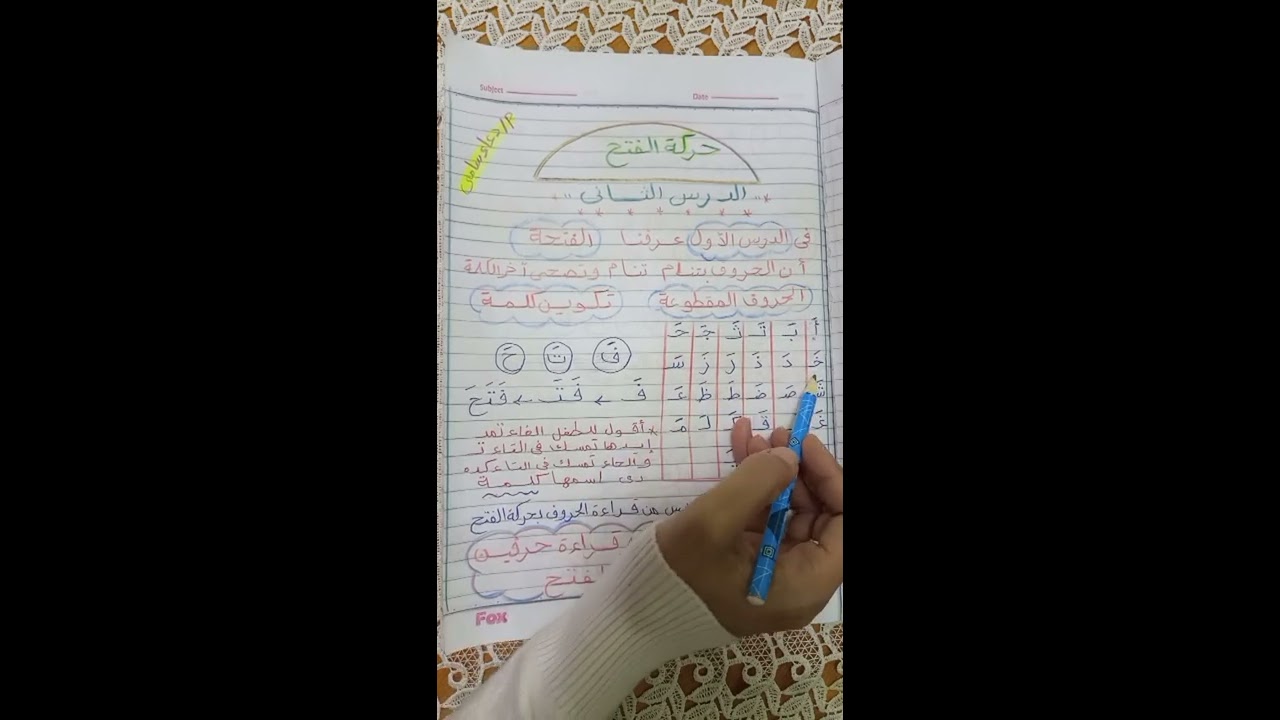 Subject
Date
م/دعاء سامى
حركة الفتح
الدرس الثانى
فى الدرس الأول عرفنا الفتحة
أن الحروف بتنام تنام وتصحى آخر الكلمة
الحروف المقطوعة
تكوين كلمة
أَ بَ تَ ثَ جَ حَ
خَ دَ ذَ رَ زَ سَ
شَ صَ ضَ طَ ظَ عَ
غَ قَ كَ لَ مَ
فَ تَ حَ
فَ ← فَتَ ← فَتَحَ
* أقول للطفل الفاء تمد
إيدها تمسك فى التاء
والحاء تمسك فى التاء كده
دى اسمها كلمة
من قراءة الحروف بحركة الفتح
قراءة حرفين
Fox